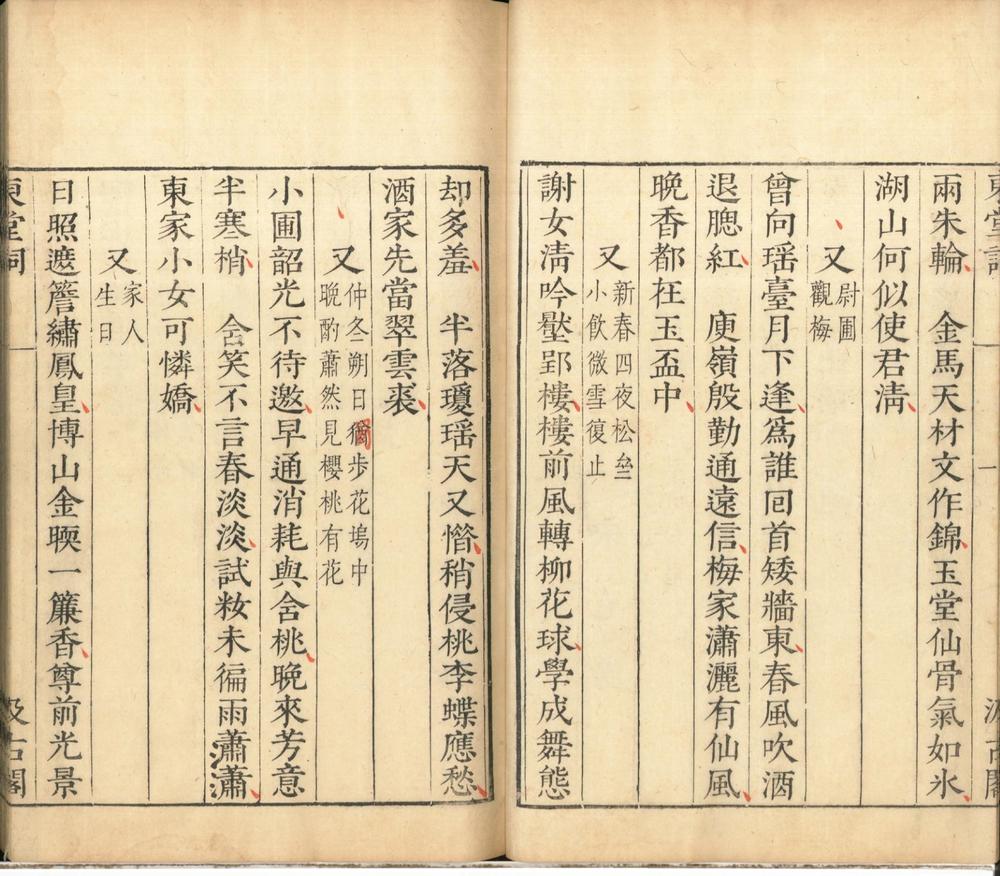 東堂詞
汲古閣
兩朱輪　金馬天材文作錦玉堂仙骨氣如氷
湖山何似使君淸
又 尉圃觀梅
曾向瑶臺月下逢爲誰回首矮牆東春風吹酒
退腮紅　庾嶺殷勤通遠信梅家瀟灑有仙風
晩香都在玉盃中
又 新春四夜松壘小飲微雪復止
謝女淸吟壓郢樓樓前風轉柳花球學成舞態
却多羞　半落瓊瑶天又惜稍侵桃李蝶應愁
酒家先當翠雲裘
又 仲冬朔日獨步花塢中晩酌蕭然見櫻桃有花
小圃韶光不待邀早通消耗與含桃晩來芳意
半寒梢　含笑不言春淡淡試妝未徧雨蕭蕭
東家小女可憐嬌
又 家人生日
日照遮簷繡鳳皇博山金暖一簾香尊前光景
東堂詞　一　汲古閣